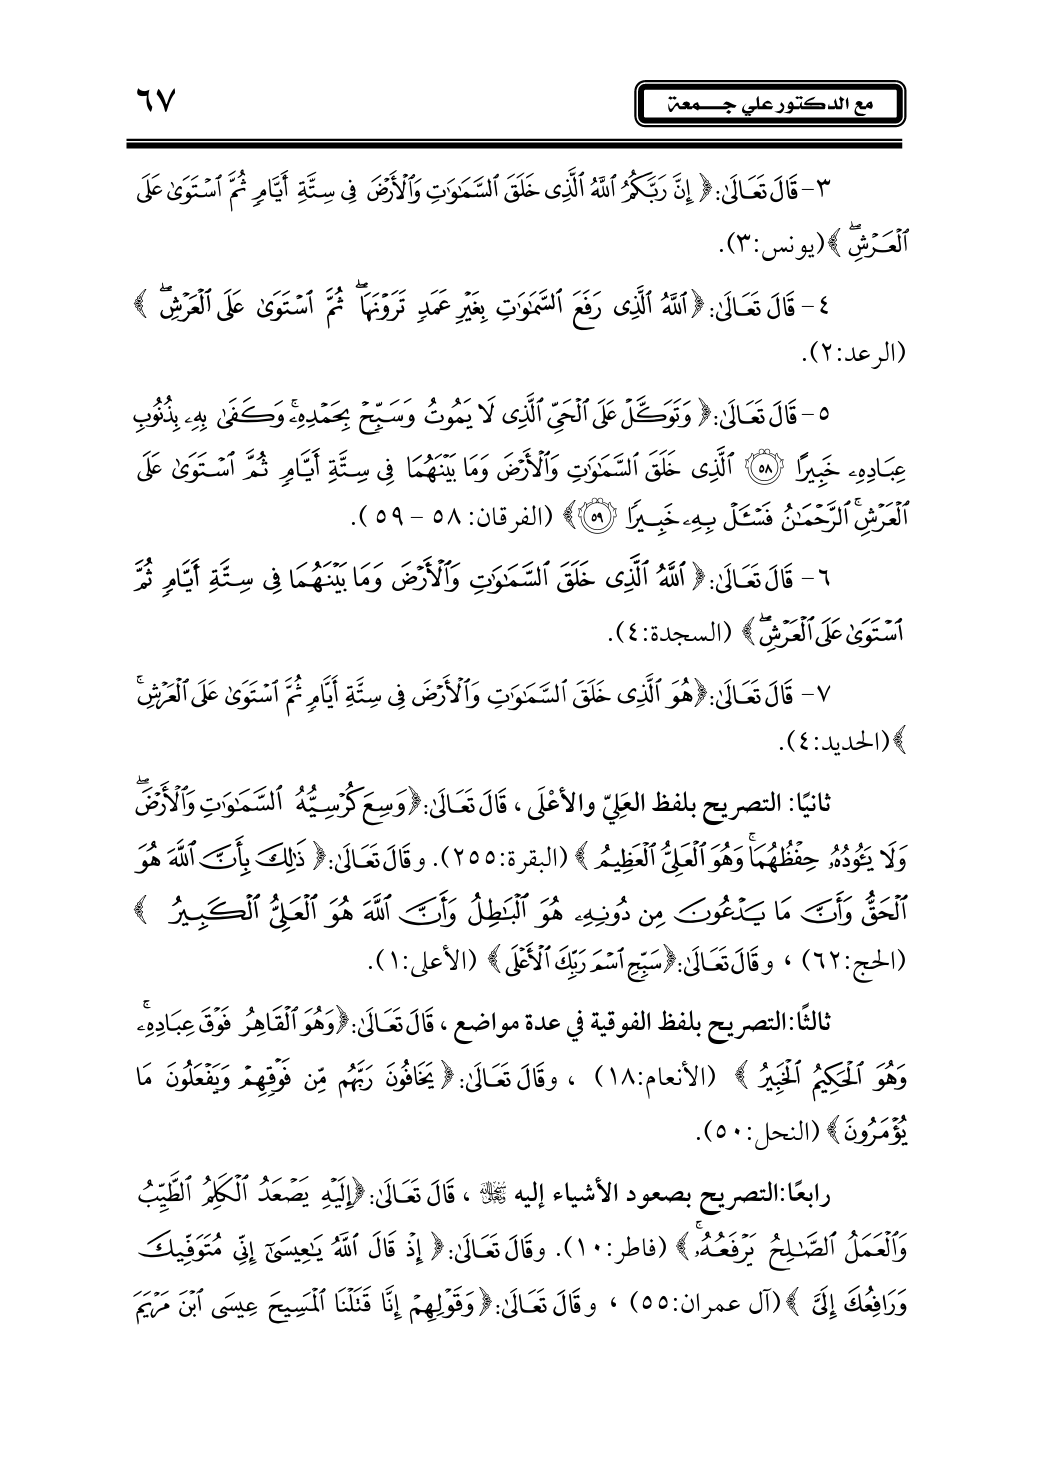 مع الدكتور علي جـــمعة ٦٧
٣- قَالَ تَعَالَىٰ: ﴿ إِنَّ رَبَّكُمُ ٱللَّهُ ٱلَّذِى خَلَقَ ٱلسَّمَـٰوَٰتِ وَٱلْأَرْضَ فِى سِتَّةِ أَيَّامٍ ثُمَّ ٱسْتَوَىٰ عَلَى
ٱلْعَرْشِ ۖ ﴾ (يونس:٣).
٤- قَالَ تَعَالَىٰ: ﴿ ٱللَّهُ ٱلَّذِى رَفَعَ ٱلسَّمَـٰوَٰتِ بِغَيْرِ عَمَدٍ تَرَوْنَهَا ۖ ثُمَّ ٱسْتَوَىٰ عَلَى ٱلْعَرْشِ ۖ ﴾
(الرعد:٢).
٥- قَالَ تَعَالَىٰ: ﴿ وَتَوَكَّلْ عَلَى ٱلْحَىِّ ٱلَّذِى لَا يَمُوتُ وَسَبِّحْ بِحَمْدِهِۦ ۚ وَكَفَىٰ بِهِۦ بِذُنُوبِ
عِبَادِهِۦ خَبِيرًا ۝٥٨ ٱلَّذِى خَلَقَ ٱلسَّمَـٰوَٰتِ وَٱلْأَرْضَ وَمَا بَيْنَهُمَا فِى سِتَّةِ أَيَّامٍ ثُمَّ ٱسْتَوَىٰ عَلَى
ٱلْعَرْشِ ۚ ٱلرَّحْمَـٰنُ فَسْـَٔلْ بِهِۦ خَبِيرًا ۝٥٩ ﴾ (الفرقان: ٥٨ – ٥٩ ).
٦- قَالَ تَعَالَىٰ: ﴿ ٱللَّهُ ٱلَّذِى خَلَقَ ٱلسَّمَـٰوَٰتِ وَٱلْأَرْضَ وَمَا بَيْنَهُمَا فِى سِتَّةِ أَيَّامٍ ثُمَّ
ٱسْتَوَىٰ عَلَى ٱلْعَرْشِ ۖ ﴾ (السجدة:٤).
٧- قَالَ تَعَالَىٰ: ﴿هُوَ ٱلَّذِى خَلَقَ ٱلسَّمَـٰوَٰتِ وَٱلْأَرْضَ فِى سِتَّةِ أَيَّامٍ ثُمَّ ٱسْتَوَىٰ عَلَى ٱلْعَرْشِ ۚ
﴾ (الحديد:٤).
ثانيًا: التصريح بلفظ العَلِيّ والأعْلَى ، قَالَ تَعَالَىٰ: ﴿وَسِعَ كُرْسِيُّهُ ٱلسَّمَـٰوَٰتِ وَٱلْأَرْضَ ۖ
وَلَا يَـُٔودُهُۥ حِفْظُهُمَا ۚ وَهُوَ ٱلْعَلِىُّ ٱلْعَظِيمُ ﴾ (البقرة:٢٥٥). وقَالَ تَعَالَىٰ: ﴿ ذَٰلِكَ بِأَنَّ ٱللَّهَ هُوَ
ٱلْحَقُّ وَأَنَّ مَا يَدْعُونَ مِن دُونِهِۦ هُوَ ٱلْبَـٰطِلُ وَأَنَّ ٱللَّهَ هُوَ ٱلْعَلِىُّ ٱلْكَبِيرُ ﴾
(الحج:٦٢) ، وقَالَ تَعَالَىٰ: ﴿سَبِّحِ ٱسْمَ رَبِّكَ ٱلْأَعْلَى ﴾ (الأعلى:١).
ثالثًا:التصريح بلفظ الفوقية في عدة مواضع ، قَالَ تَعَالَىٰ: ﴿وَهُوَ ٱلْقَاهِرُ فَوْقَ عِبَادِهِۦ ۚ
وَهُوَ ٱلْحَكِيمُ ٱلْخَبِيرُ ﴾ (الأنعام:١٨) ، وقَالَ تَعَالَىٰ: ﴿ يَخَافُونَ رَبَّهُم مِّن فَوْقِهِمْ وَيَفْعَلُونَ مَا
يُؤْمَرُونَ ﴾ (النحل:٥٠).
رابعًا:التصريح بصعود الأشياء إليه ﷻ ، قَالَ تَعَالَىٰ: ﴿إِلَيْهِ يَصْعَدُ ٱلْكَلِمُ ٱلطَّيِّبُ
وَٱلْعَمَلُ ٱلصَّـٰلِحُ يَرْفَعُهُۥ ۚ ﴾ (فاطر:١٠). وقَالَ تَعَالَىٰ: ﴿ إِذْ قَالَ ٱللَّهُ يَـٰعِيسَىٰٓ إِنِّى مُتَوَفِّيكَ
وَرَافِعُكَ إِلَىَّ ﴾ (آل عمران:٥٥) ، وقَالَ تَعَالَىٰ: ﴿وَقَوْلِهِمْ إِنَّا قَتَلْنَا ٱلْمَسِيحَ عِيسَى ٱبْنَ مَرْيَمَ